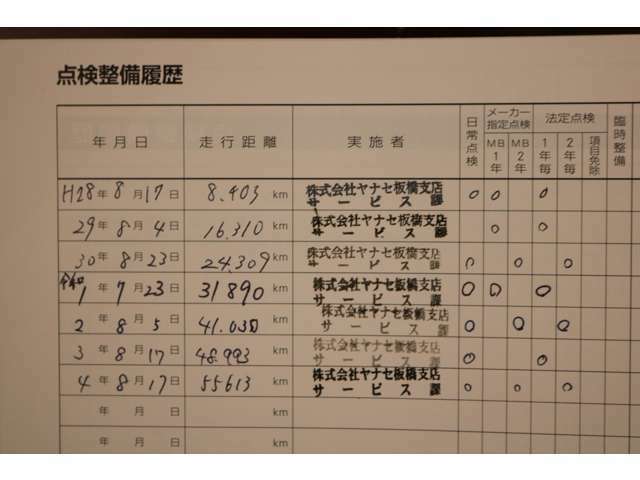 点検整備履歴
年月日 走行距離 実施者 日常点検 メーカー指定点検 MB1年 MB2年 法定点検 1年毎 2年毎 項目免除 臨時整備
H28年8月17日 8.403 km 株式会社ヤナセ板橋支店 サービス課 ○ ○ ○
29年8月4日 16.310 km 株式会社ヤナセ板橋支店 サービス課 ○ ○
30年8月23日 24.309 km 株式会社ヤナセ板橋支店 サービス課 ○ ○ ○
令和1年7月23日 31890 km 株式会社ヤナセ板橋支店 サービス課 ○ ○ ○
2年8月5日 km 株式会社ヤナセ板橋支店 サービス課 ○ ○ ○
3年8月17日 48.993 km 株式会社ヤナセ板橋支店 サービス課 ○ ○
4年8月17日 55613 km 株式会社ヤナセ板橋支店 サービス課 ○ ○ ○
年月日 km
年月日 km